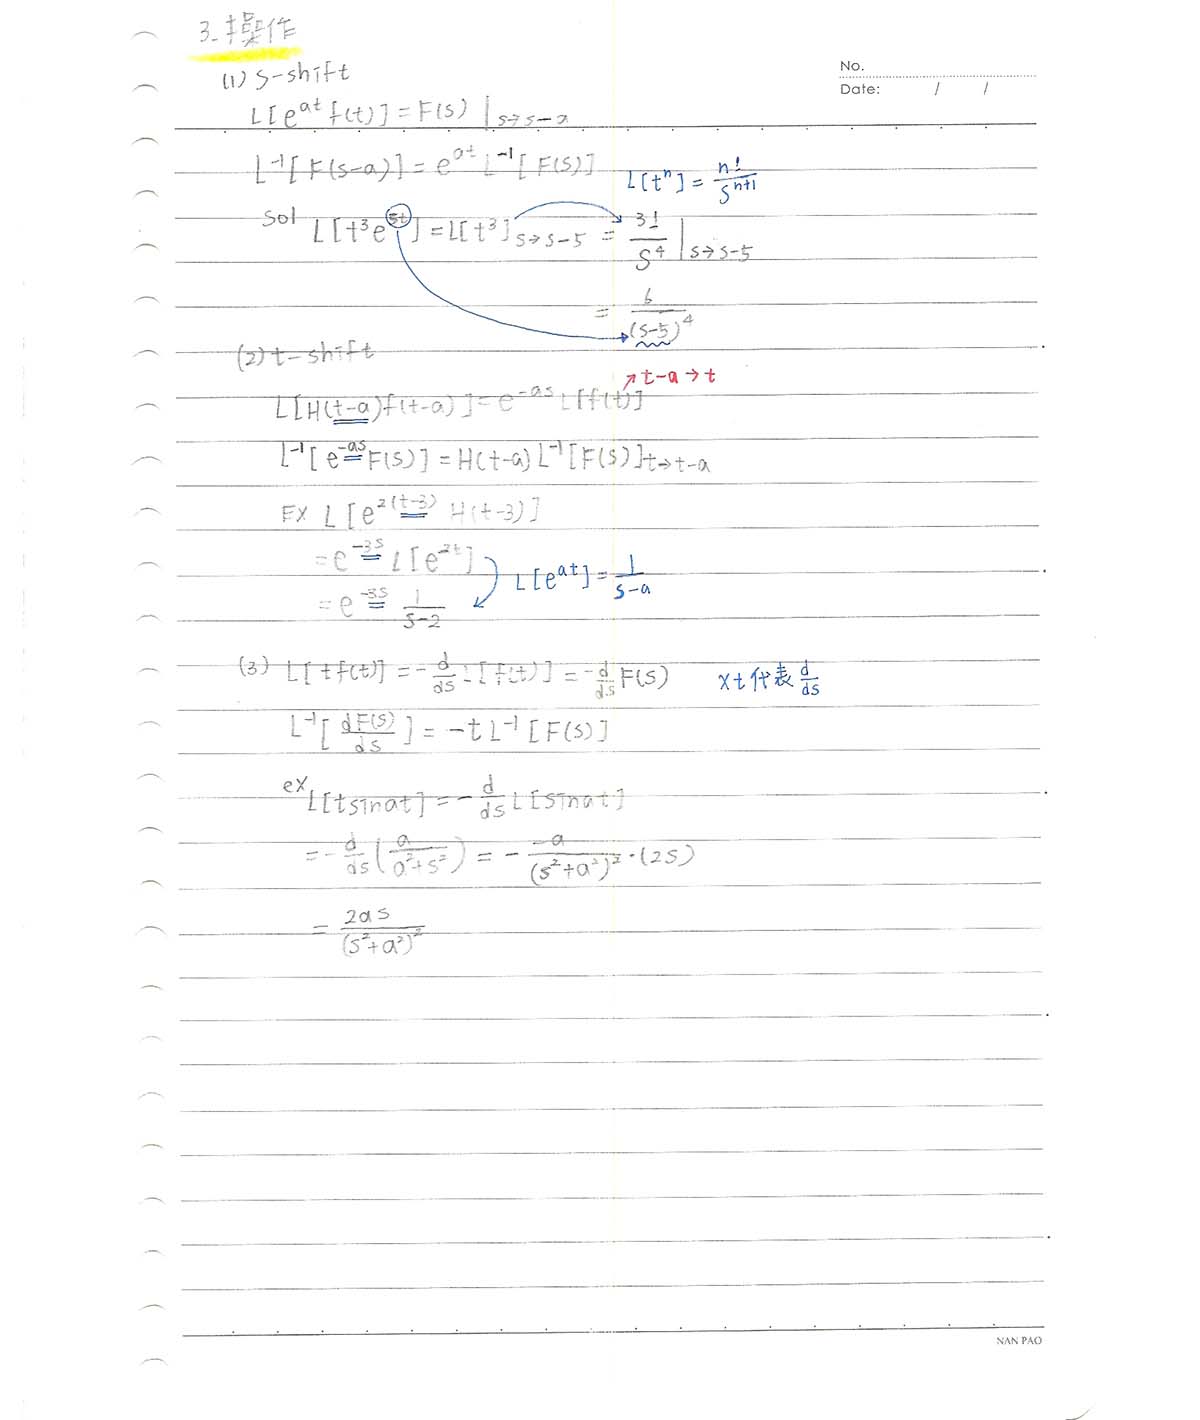 3. 操作
No.
(1) s-shift
Date: / /
L[e^{at} f(t)] = F(s) |_{s→s-a}
L^{-1}[F(s-a)] = e^{at} L^{-1}[F(s)]
L[t^n] = \frac{n!}{s^{n+1}}
sol L[t^3 e^{5t}] = L[t^3]_{s→s-5} = \frac{3!}{s^4} |_{s→s-5}
= \frac{6}{(s-5)^4}
(2) t-shift
↗ t-a → t
L[H(t-a)f(t-a)] = e^{-as} L[f(t)]
L^{-1}[e^{-as} F(s)] = H(t-a) L^{-1}[F(s)]_{t→t-a}
EX L[e^{2(t-3)} H(t-3)]
= e^{-3s} L[e^{2t}]
L[e^{at}] = \frac{1}{s-a}
= e^{-3s} \frac{1}{s-2}
(3) L[tf(t)] = -\frac{d}{ds} L[f(t)] = -\frac{d}{ds} F(s) ×t代表\frac{d}{ds}
L^{-1}[\frac{dF(s)}{ds}] = -t L^{-1}[F(s)]
ex L[tsinat] = -\frac{d}{ds} L[sinat]
= -\frac{d}{ds}(\frac{a}{a^2+s^2}) = -\frac{-a}{(s^2+a^2)^2}·(2s)
= \frac{2as}{(s^2+a^2)^2}
NAN PAO